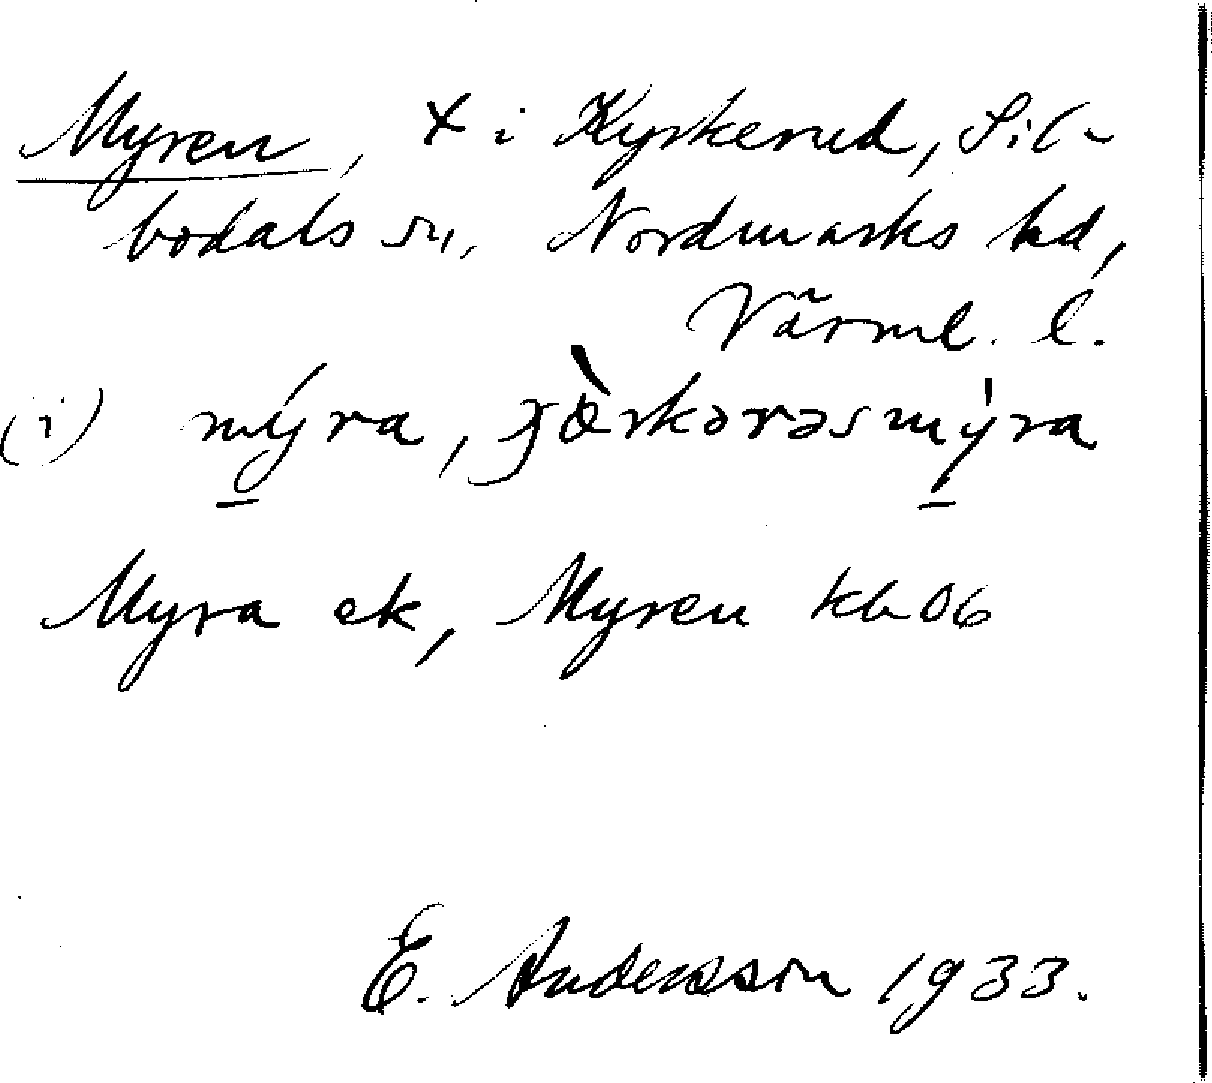 Myren, × i Kyrkerud, Sil-
bodals sn, Nordmarks hd,
Värml. l.
(i) mý̠ra, jœ̀rkərəsmy̠̍ra
Myra ek, Myren kb 06
E. Andersson 1933.